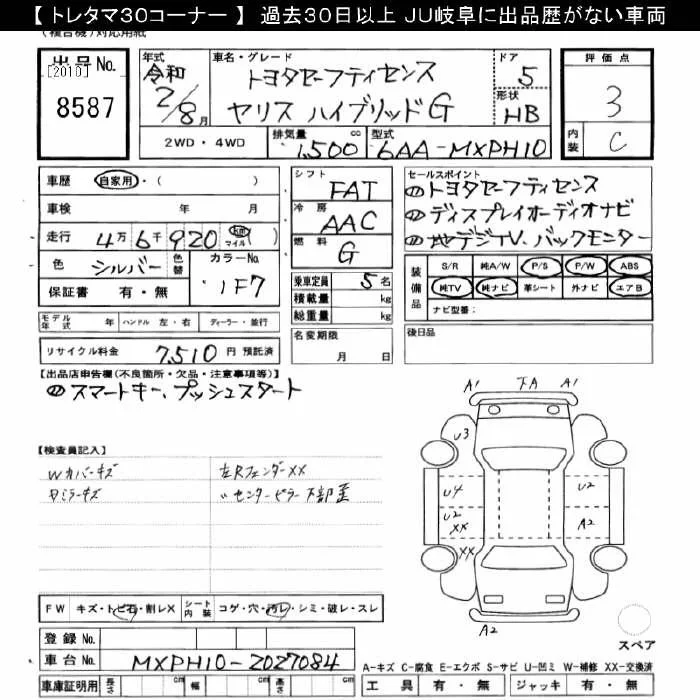 【 トレタマ30コーナー 】 過去30日以上 JU岐阜に出品歴がない車両
出品 No.
[2010]
8587
年式
令和
2/8月
車名・グレード
トヨタセーフティセンス
ヤリス ハイブリッドG
ドア
5
形状
HB
評価点
3
内装
C
2WD・4WD
排気量
1,500 cc
型式
6AA-MXPH10
車歴 自家用・( )
車検 年 月
走行 4万6千920 km マイル ( )
色 シルバー 色替
カラーNo. 1F7
保証書 有・無
シフト FAT
冷房 AAC
燃料 G
乗車定員 5名
積載量 kg
総重量 kg
セールスポイント
トヨタセーフティセンス
ディスプレイオーディオナビ
地デジTV、バックモニター
装備品 S/R 純A/W P/S P/W ABS
純TV 純ナビ 革シート 外ナビ エアB
ナビ型番:
モデル年式 年 ハンドル 左・右 ディーラー・並行
リサイクル料金 7,510 円 預託済
名変期限
月 日
後日品
【出品店申告欄(不良箇所・欠品・注意事項等)】
スマートキー、プッシュスタート
【検査員記入】
Wカバーキズ
左Rフェンダー XX
ミラーキズ
〃センターピラー下部歪
A1 下A A1
U3
U4 U2
U2 XX A2
XX
A2
スペア
FW キズ・トビ石・割レX シート内装 コゲ・穴・汚レ・シミ・破レ・スレ
登録 No.
車台 No. MXPH10-2027084
車庫証明用 長さ cm 幅 cm 高さ cm
A-キズ C-腐食 E-エクボ S-サビ U-凹ミ W-補修 XX-交換済
工具 有・無 ジャッキ 有・無